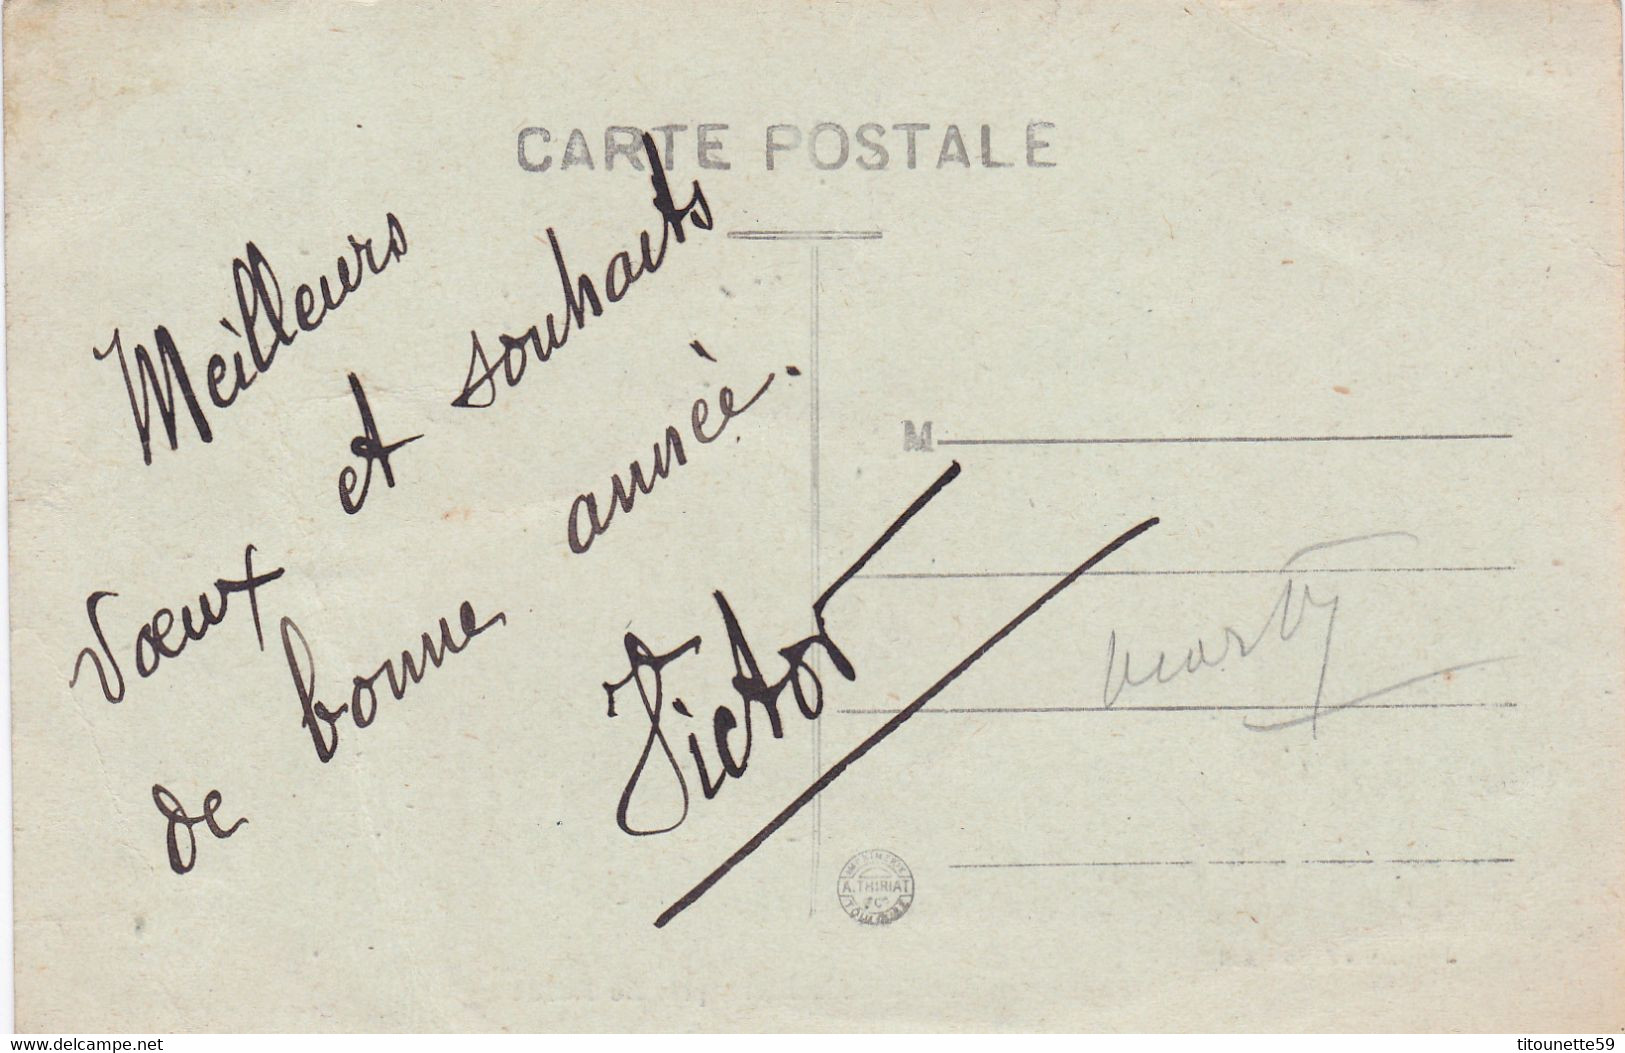 CARTE POSTALE
Meilleurs
Vœux et souhaits
de bonne année.
Victor
M
Marty
IMPRIMERIE
A. THIRIAT
& Cie
TOULOUSE
www.delcampe.net
titounette59